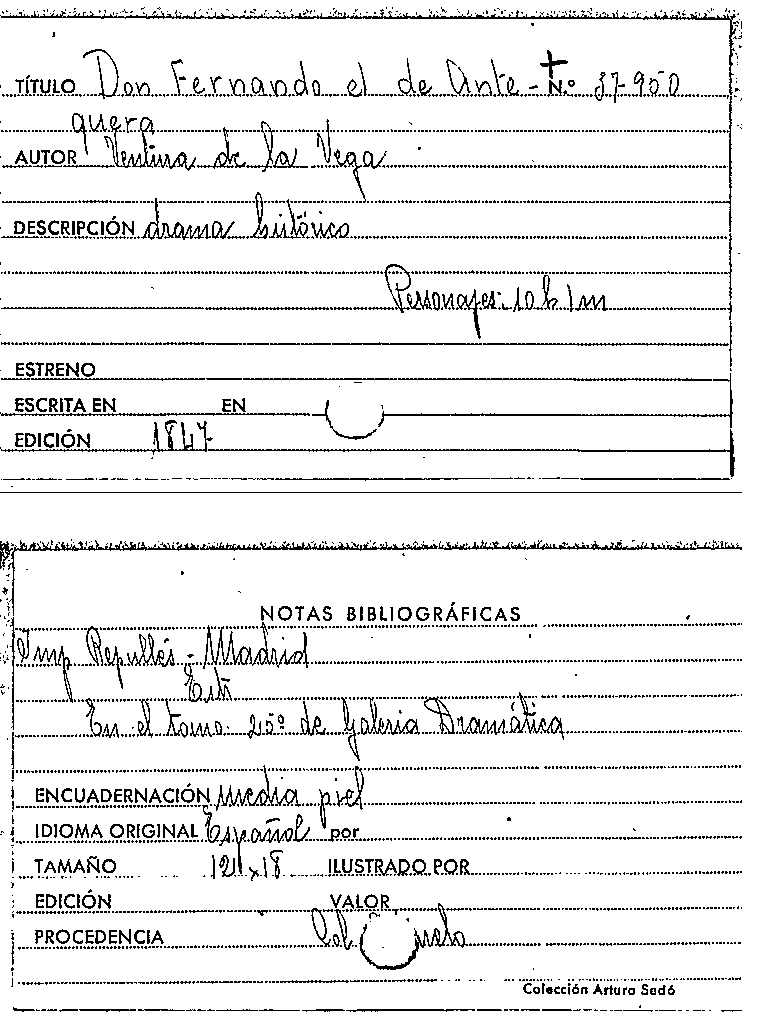 TÍTULO Don Fernando el de Ante- N.º 37-950
quera
AUTOR Ventura de la Vega
DESCRIPCIÓN drama histórico
Personajes: 10 h 1m
ESTRENO
ESCRITA EN EN
EDICIÓN 1847
NOTAS BIBLIOGRÁFICAS
Imp Repullés - Madrid
En el tomo 25º de Galeria Dramática
ENCUADERNACIÓN media piel
IDIOMA ORIGINAL Español por
TAMAÑO 12 x 18 ILUSTRADO POR
EDICIÓN VALOR
PROCEDENCIA
Colección Arturo Sedó